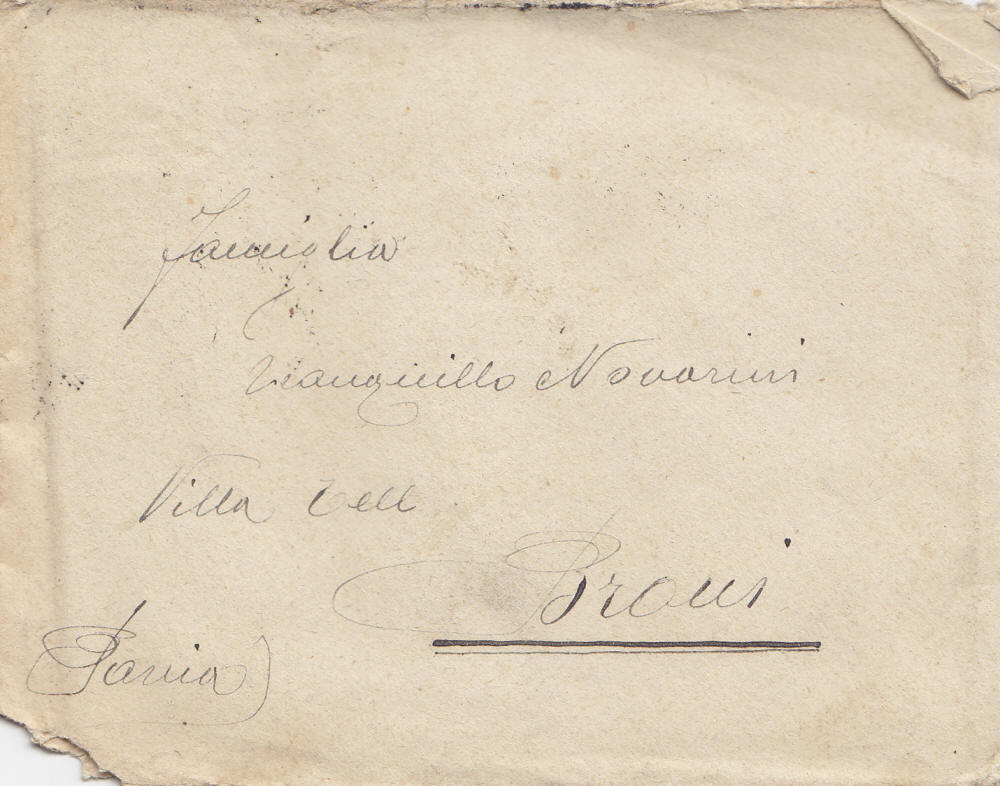 Famiglia
Tranquillo Novarini
Villa Tell
Broni
(Pavia)